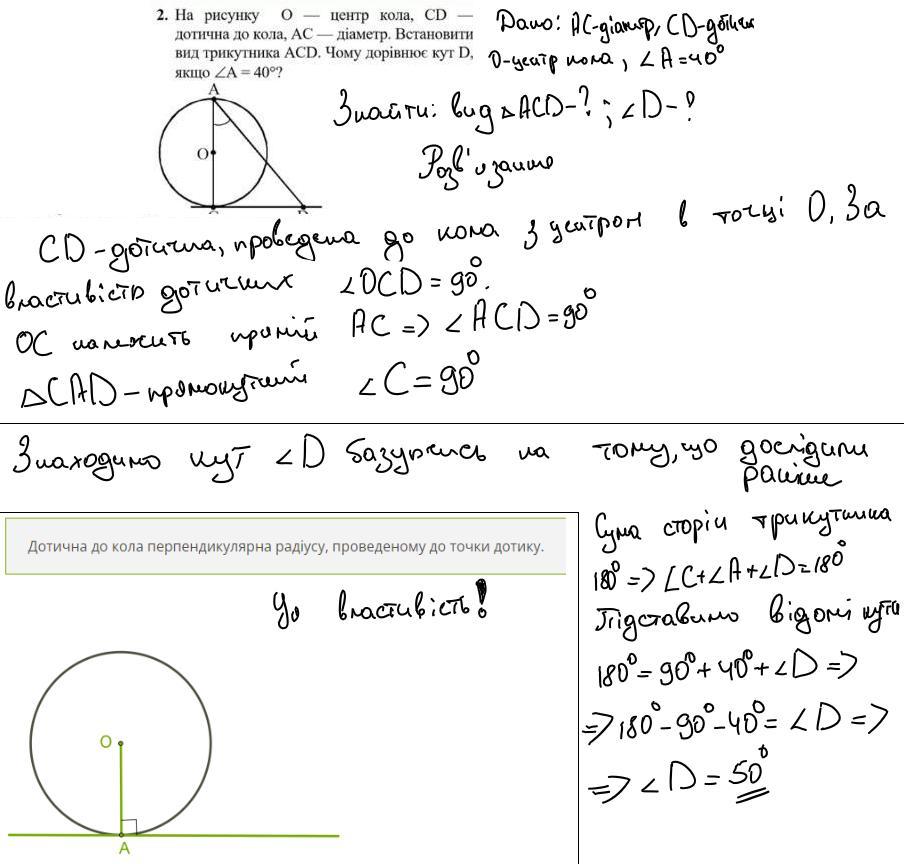 2. На рисунку О — центр кола, CD —
дотична до кола, AC — діаметр. Встановити
вид трикутника ACD. Чому дорівнює кут D,
якщо ∠A = 40°?
A
O
Дано: AC-діаметр, CD-дотична
О-центр кола, ∠A=40°
Знайти: вид △ACD-?; ∠D-?
Розв'язання
CD-дотична, проведена до кола з центром в точці О, За
властивістю дотичних ∠OCD=90°.
OC належить прямій AC => ∠ACD=90°
△CAD-прямокутний ∠C=90°
Знаходимо кут ∠D базуючись на тому, що дослідили
раніше
Дотична до кола перпендикулярна радіусу, проведеному до точки дотику.
Це властивість!
O
A
Сума сторін трикутника
180° => ∠C+∠A+∠D=180°
Підставимо відомі кути
180°=90°+40°+∠D =>
=> 180°-90°-40°=∠D =>
=> ∠D=50°